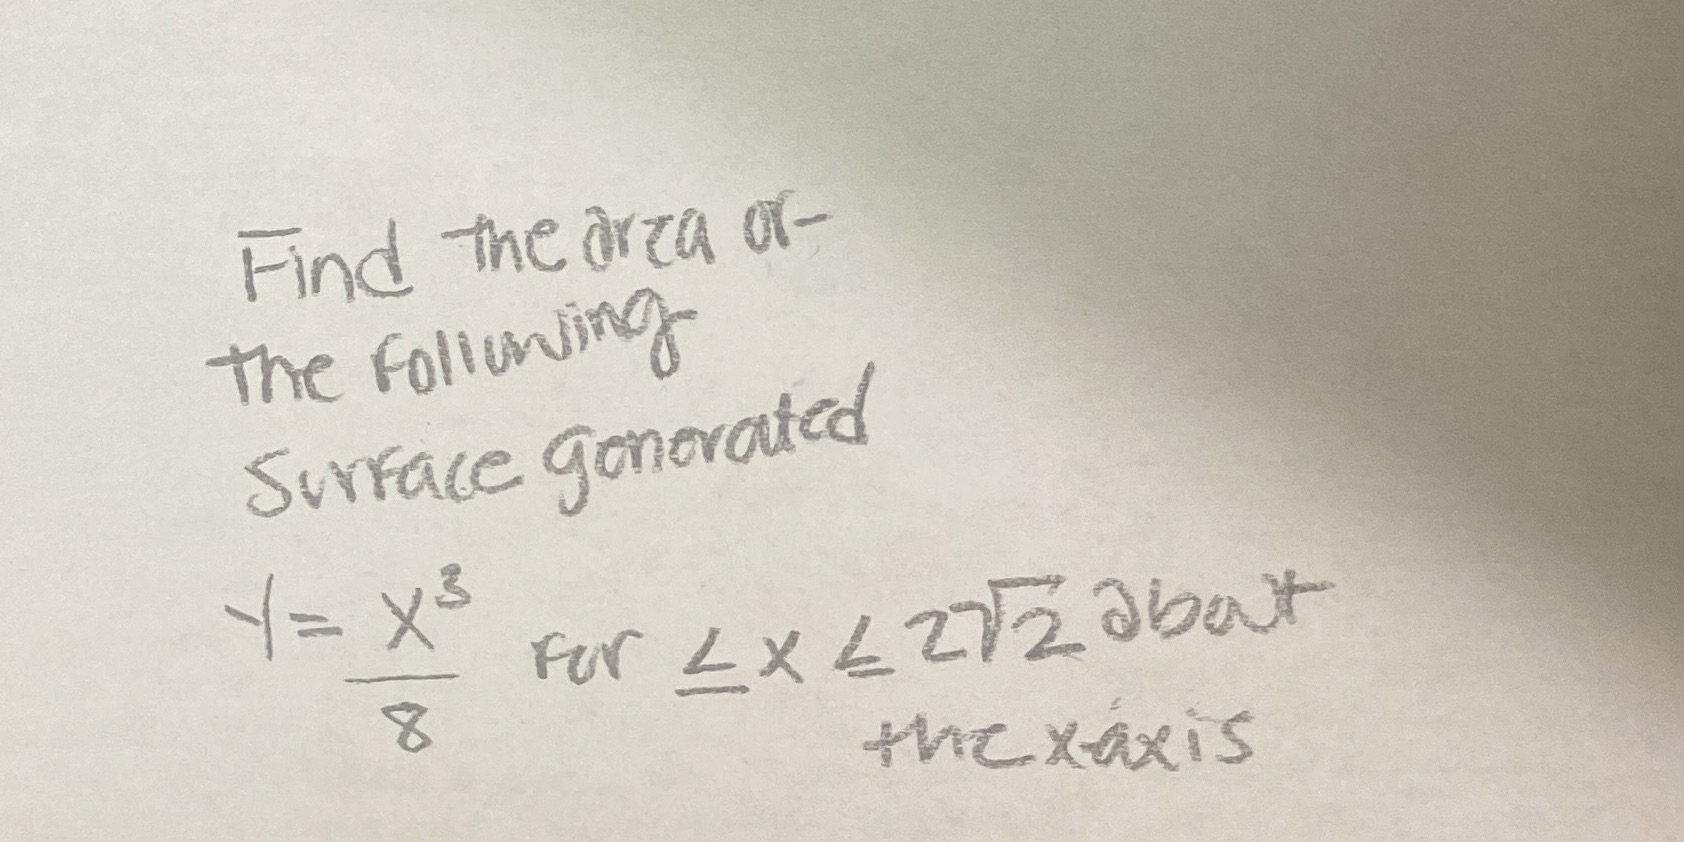 Find the area of
the following
Surface generated
Y = x³/8 for ≤ x ≤ 2√2 about
the x-axis